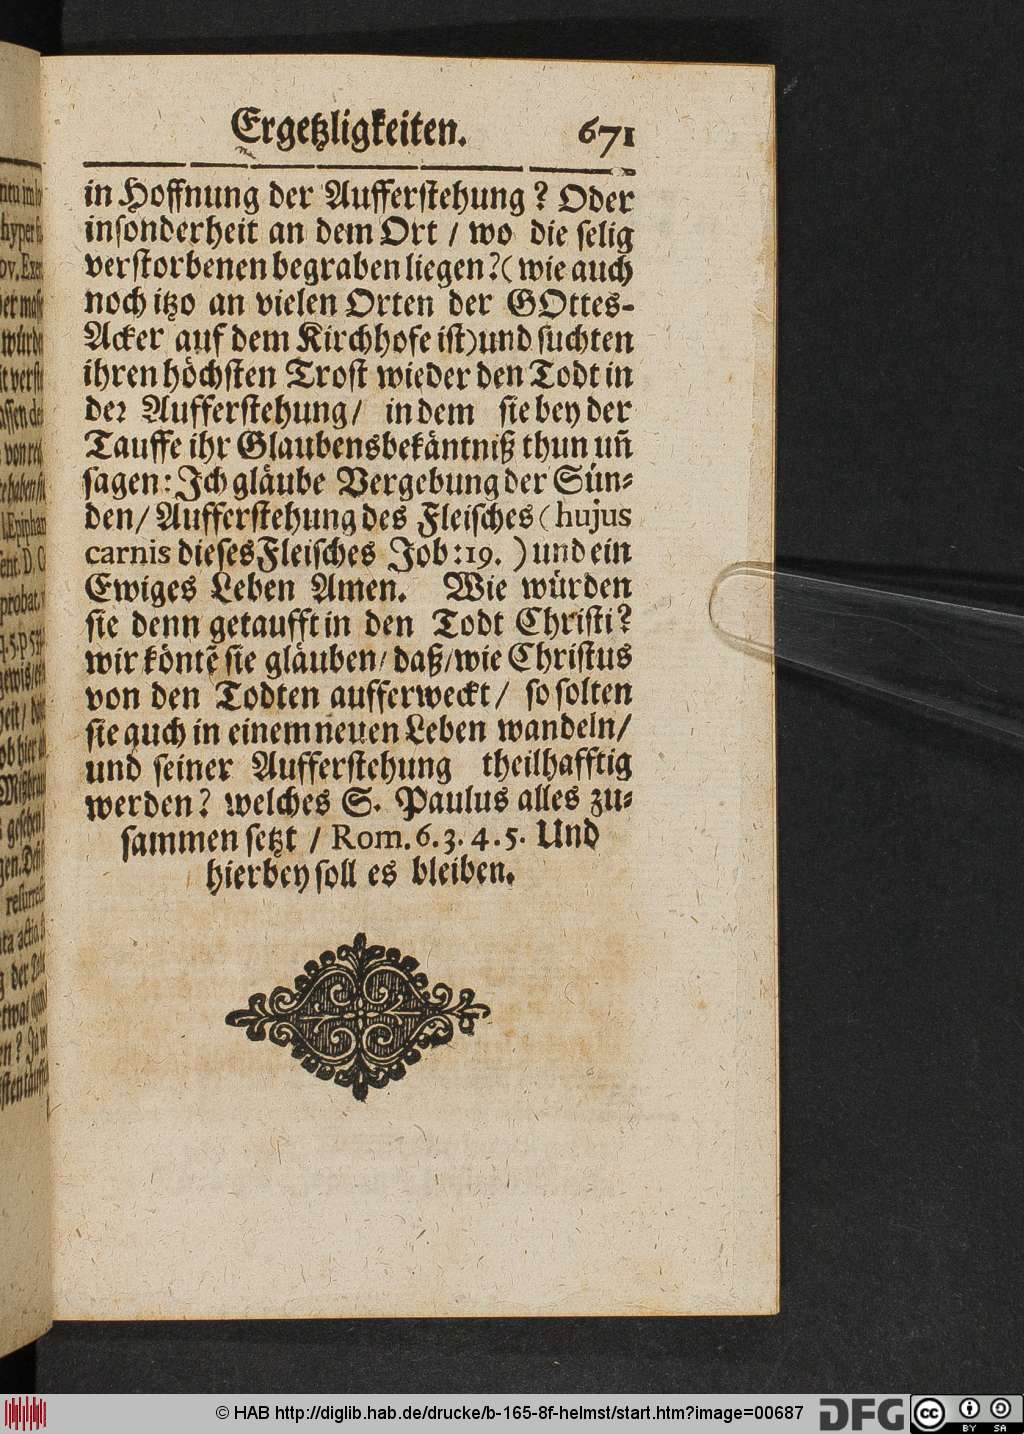 Ergetzligkeiten. 671
in Hoffnung der Aufferstehung? Oder
insonderheit an dem Ort / wo die selig
verstorbenen begraben liegen? (wie auch
noch itzo an vielen Orten der GOttes-
Acker auf dem Kirchhofe ist) und suchten
ihren höchsten Trost wieder den Todt in
der Aufferstehung / in dem sie bey der
Tauffe ihr Glaubensbekäntniß thun uñ
sagen: Ich gläube Vergebung der Sün-
den / Aufferstehung des Fleisches (hujus
carnis dieses Fleisches Job: 19. ) und ein
Ewiges Leben Amen. Wie würden
sie denn getaufft in den Todt Christi?
wir köntẽ sie gläuben / daß / wie Christus
von den Todten aufferweckt / so solten
sie auch in einem neuen Leben wandeln /
und seiner Aufferstehung theilhafftig
werden? welches S. Paulus alles zu-
sammen setzt / Rom. 6. 3. 4. 5. Und
hierbey soll es bleiben.
© HAB http://diglib.hab.de/drucke/b-165-8f-helmst/start.htm?image=00687
DFG
cc BY SA